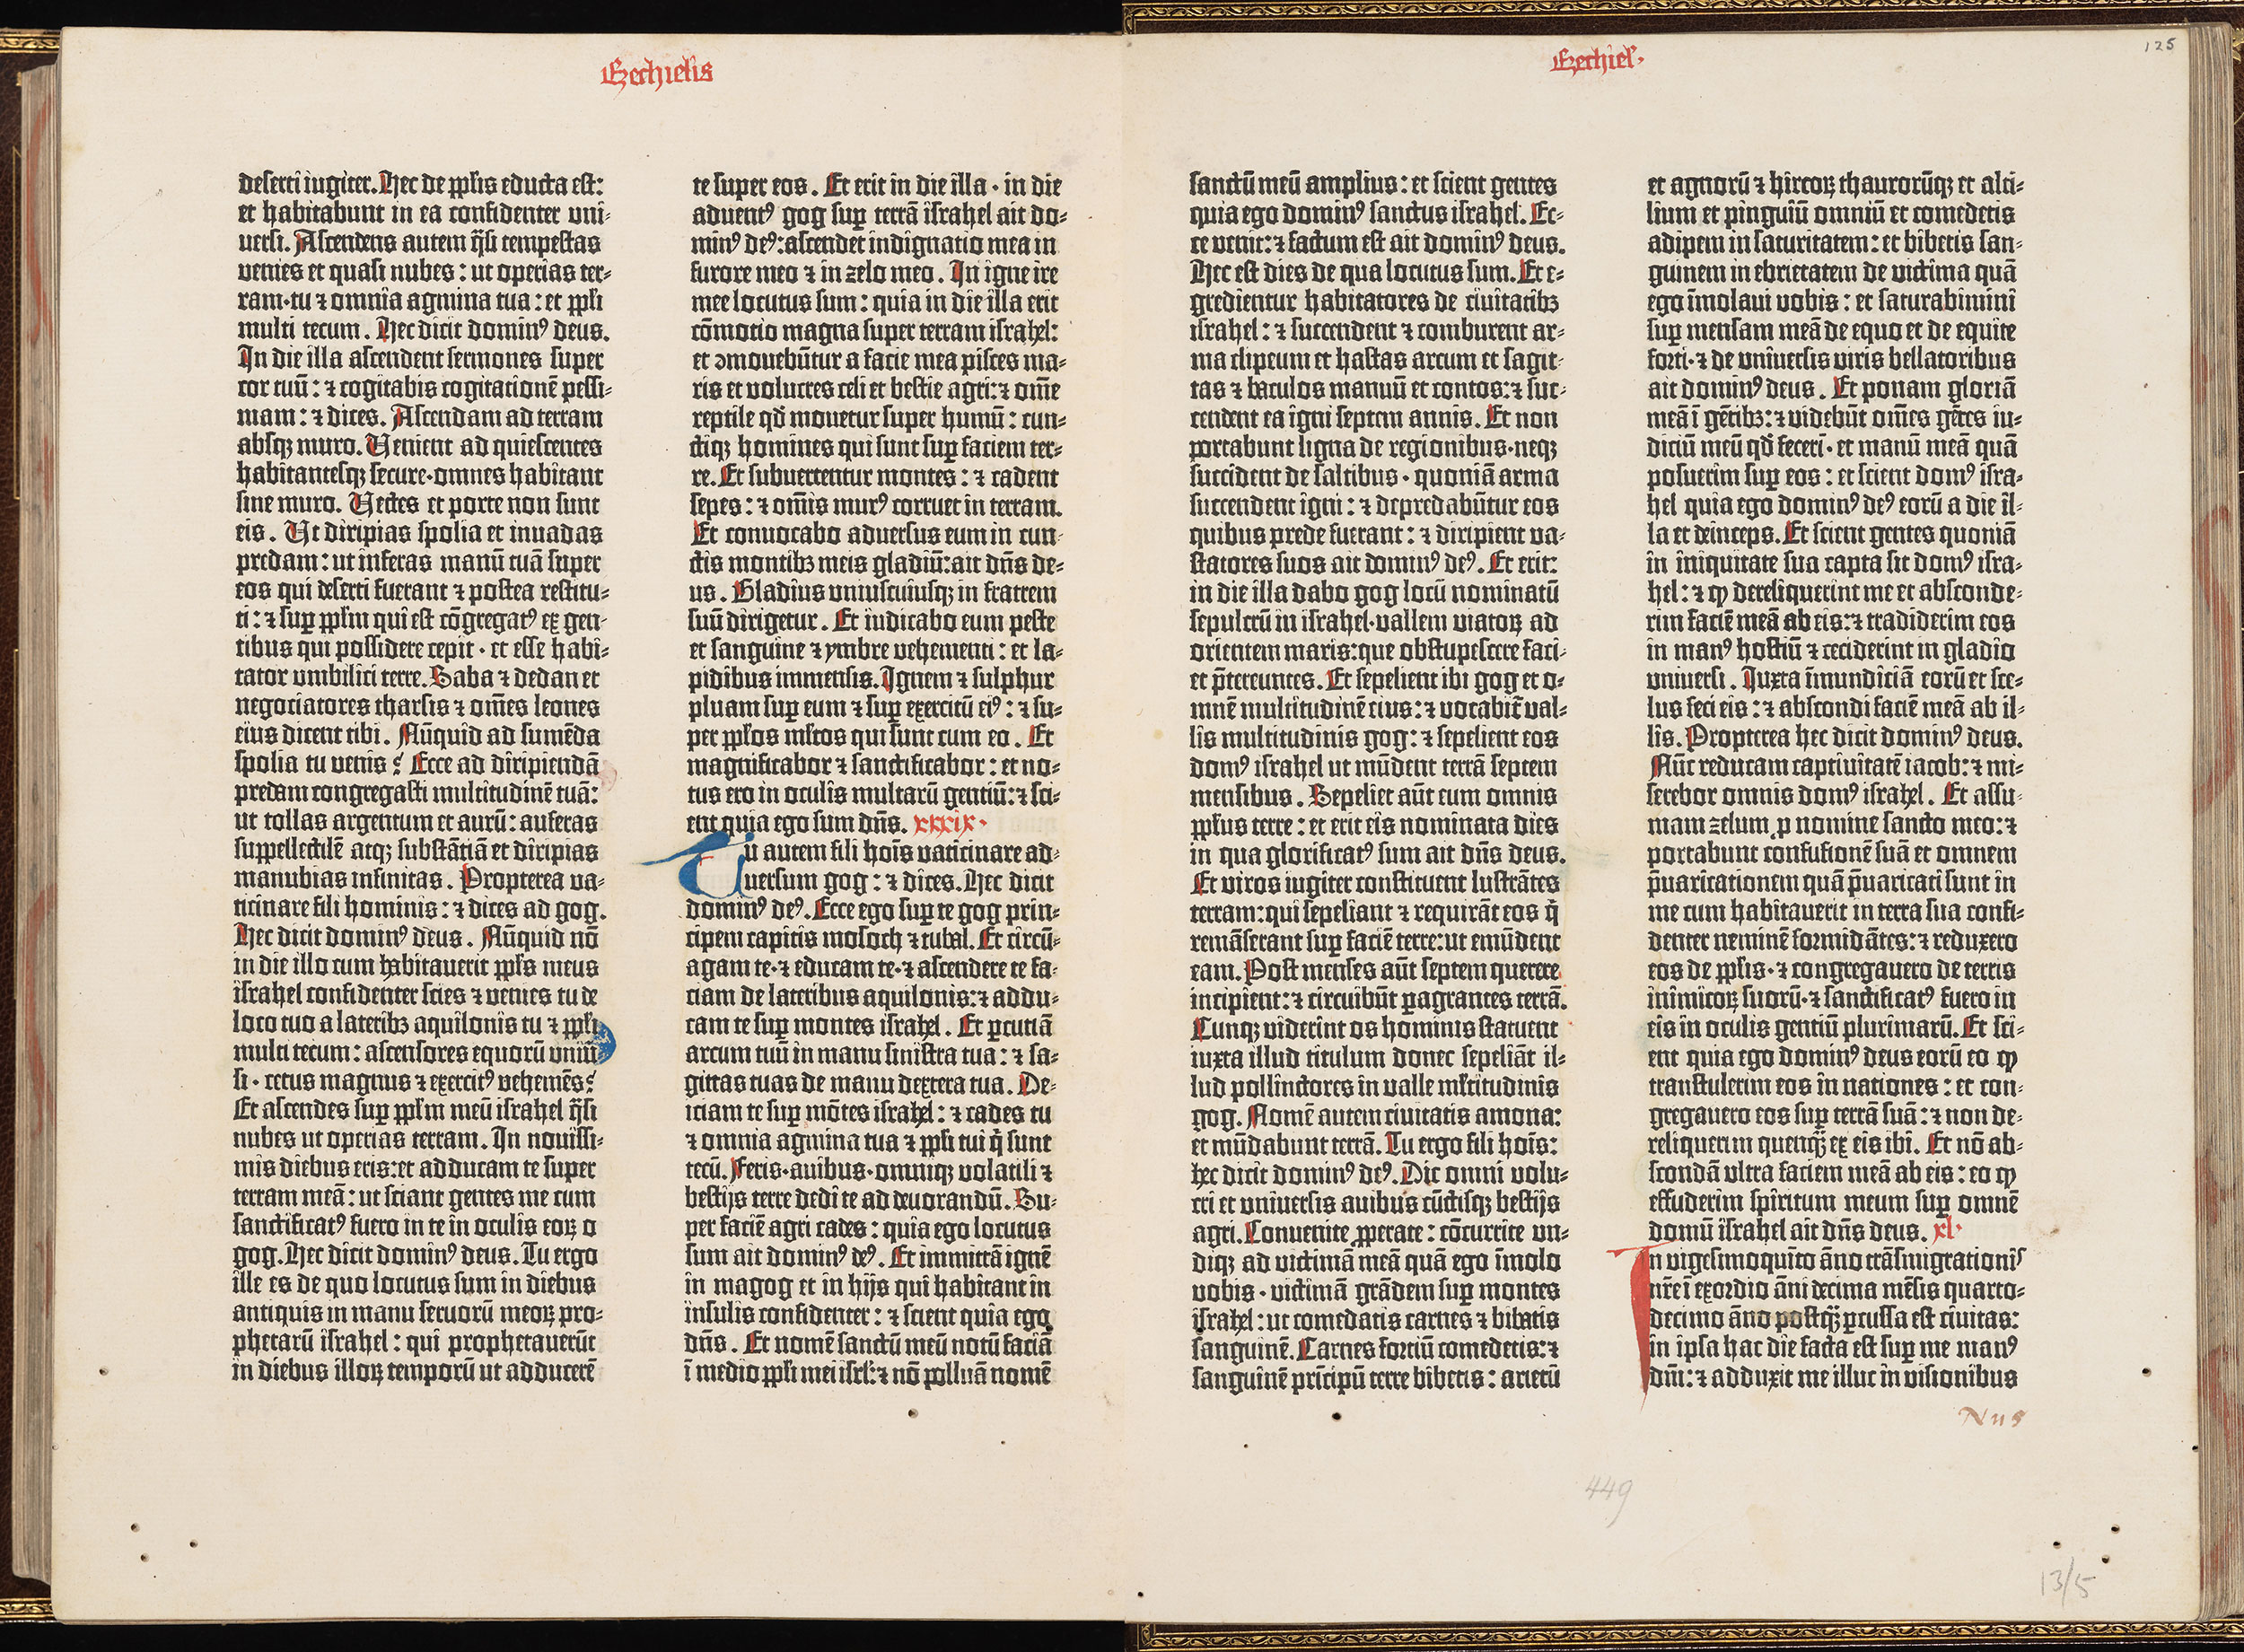 Ezechielis
deserti iugiter. Hec de ꝓplis educta est:
et habitabunt in ea confidenter uni-
uersi. Ascendens autem q̃si tempestas
venies et quasi nubes : ut operias ter-
ram·tu ⁊ omnia agmina tua : et ppl̃i
multi tecum . Hec dicit dominꝰ deus.
In die illa ascendent sermones super
cor tuū : ⁊ cogitabis cogitationē pessi-
mam : ⁊ dices. Ascendam ad terram
absqꝫ muro. Veniem ad quiescentes
habitantesqꝫ secure·omnes habitant
sine muro. Vectes et porte non sunt
eis . Ut diripias spolia et inuadas
predam : ut inferas manū tuā super
eos qui deserti fuerant ⁊ postea restitu-
ti : ⁊ suꝑ ppl̃m qui est cōgregatꝰ ex gen-
tibus qui possidere cepit · et esse habi-
tator umbilici terre. Saba ⁊ dedan et
negociatores tharsis ⁊ om̄es leones
eius dicent tibi . Nūquid ad sumēda
spolia tu venis ? Ecce ad diripiendā
predam congregasti multitudinē tuā:
ut tollas argentum et aurū : auferas
suppellectilē atqꝫ substātiā et diripias
manubias infinitas . Propterea va-
ticinare fili hominis : ⁊ dices ad gog.
Hec dicit dominꝰ deus . Nūquid nō
in die illo cum habitauerit ppl̃s meus
israhel confidenter scies ⁊ venies tu de
loco tuo a lateribꝫ aquilonis tu ⁊ ppl̃i
multi tecum : ascensores equorū uniu
si · cetus magnus ⁊ exercitꝰ vehemēs?
Et ascendes suꝑ ppl̃m meū israhel q̃si
nubes ut operias terram . In nouissi-
mis diebus eris:et adducam te super
terram meā : ut sciant gentes me cum
sanctificatꝰ fuero in te in oculis eoꝝ o
gog. Hec dicit dominꝰ deus . Tu ergo
ille es de quo locutus sum in diebus
antiquis in manu seruorū meoꝝ pro-
phetarū israhel : qui prophetauerūt
in diebus illoꝝ temporū ut adducerē
te super eos . Et erit in die illa · in die
aduentꝰ gog suꝑ terrā israhel ait do-
minꝰ deꝰ:ascendet indignatio mea in
furore meo ⁊ in zelo meo . In igne ire
mee locutus sum : quia in die illa erit
cōmotio magna super terram israhel:
et ꝯmouebūtur a facie mea pisces ma-
ris et volucres celi et bestie agri:⁊ om̄e
reptile qd̄ mouetur super humū : cun-
ctiqꝫ homines qui sunt suꝑ faciem ter-
re. Et subuertentur montes : ⁊ cadent
sepes : ⁊ om̄is murꝰ corruet in terram.
Et conuocabo aduersus eum in cun-
ctis montibꝫ meis gladiū:ait dn̄s de-
us . Gladius uniuscuiusqꝫ in fratrem
suū dirigetur . Et iudicabo eum peste
et sanguine ⁊ ymbre vehementi : et la-
pidibus immensis. Ignem ⁊ sulphur
pluam suꝑ eum ⁊ suꝑ exercitū eiꝰ : ⁊ su-
per ppl̃os ml̃tos qui sunt cum eo . Et
magnificabor ⁊ sanctificabor : et no-
tus ero in oculis multarū gentiū:⁊ sci-
ent quia ego sum dn̄s. xxxix·
Tu autem fili hoīs vaticinare ad-
uersum gog : ⁊ dices. Hec dicit
dominꝰ deꝰ. Ecce ego suꝑ te gog prin-
cipem capitis mosoch ⁊ tubal. Et circū-
agam te·⁊ educam te·⁊ ascendere te fa-
ciam de lateribus aquilonis:⁊ addu-
cam te suꝑ montes israhel . Et ꝑcutiā
arcum tuū in manu sinistra tua : ⁊ sa-
gittas tuas de manu dextera tua . De-
iciam te suꝑ mōtes israhel : ⁊ cades tu
⁊ omnia agmina tua ⁊ ppl̃i tui q̄ sunt
tecū. Feris·auibus·omniqꝫ volatili ⁊
bestijs terre dedi te ad deuorandū . Su-
per faciē agri cades : quia ego locutus
sum ait dominꝰ deꝰ . Et immittā ignē
in magog et in hijs qui habitant in
insulis confidenter : ⁊ scient quia ego
dn̄s . Et nomē sanctū meū notū faciā
ī medio ppl̃i mei isrl̃:⁊ nō polluā nomē
Ezechiel·
125
sanctū meū amplius : et scient gentes
quia ego dominꝰ sanctus israhel. Ec-
ce venit:⁊ factum est ait dominꝰ deus.
Hec est dies de qua locutus sum . Et e-
gredientur habitatores de ciuitatibꝫ
israhel : ⁊ succendent ⁊ comburent ar-
ma clipeum et hastas arcum et sagit-
tas ⁊ baculos manuū et contos:⁊ suc-
cendent ea igni septem annis. Et non
portabunt ligna de regionibus·neqꝫ
succident de saltibus · quoniā arma
succendent igni : ⁊ depredabūtur eos
quibus prede fuerant : ⁊ diripient va-
statores suos ait dominꝰ deꝰ. Et erit:
in die illa dabo gog locū nominatū
sepulcrū in israhel·vallem viatoꝝ ad
orientem maris:que obstupescere faci-
et p̄tereuntes. Et sepelient ibi gog et o-
mnē multitudinē eius:⁊ vocabit̄ val-
lis multitudinis gog : ⁊ sepelient eos
domꝰ israhel ut mūdent terrā septem
mensibus . Sepeliet aūt eum omnis
ppl̃us terre : et erit eis nominata dies
in qua glorificatꝰ sum ait dn̄s deus.
Et viros iugiter constituent lustrātes
terram:qui sepeliant ⁊ requirāt eos q̄
remāserant suꝑ faciē terre:ut emūdent
eam. Post menses aūt septem querere
incipient:⁊ circuibūt ꝑagrantes terrā.
Cunqꝫ viderint os hominis statuent
iuxta illud titulum donec sepeliāt il-
lud pollinctores in valle ml̃titudinis
gog. Nomē autem ciuitatis amona:
et mūdabunt terrā. Tu ergo fili hoīs:
hec dicit dominꝰ deꝰ. Dic omni volu-
cri et uniuersis auibus cūctisqꝫ bestijs
agri. Conuenite ꝓperate : cōcurrite un-
diqꝫ ad victimā meā quā ego īmolo
vobis · victimā grādem suꝑ montes
israhel : ut comedatis carnes ⁊ bibatis
sanguinē. Carnes fortiū comedetis:⁊
sanguinē prīcipū terre bibetis : arietū
et agnorū ⁊ hircoꝝ thaurorūqꝫ et alti-
lium et pinguiū omniū et comedetis
adipem in saturitatem : et bibetis san-
guinem in ebrietatem de victima quā
ego īmolaui vobis : et saturabimini
suꝑ mensam meā de equo et de equite
forti·⁊ de uniuersis viris bellatoribus
ait dominꝰ deus . Et ponam gloriā
meā ī gētibꝫ:⁊ videbūt om̄es gētes iu-
diciū meū qd̄ fecerī · et manū meā quā
posuerim suꝑ eos : et scient domꝰ isra-
hel quia ego dominꝰ deꝰ eorū a die il-
la et deinceps. Et scient gentes quoniā
in iniquitate sua capta sit domꝰ isra-
hel : ⁊ ꝙ dereliquerint me et absconde-
rim faciē meā ab eis:⁊ tradiderim eos
in manꝰ hostiū ⁊ ceciderint in gladio
uniuersi . Iuxta īmundiciā eorū et sce-
lus feci eis : ⁊ abscondi faciē meā ab il-
lis. Propterea hec dicit dominꝰ deus.
Nūc reducam captiuitatē iacob:⁊ mi-
serebor omnis domꝰ israhel . Et assu-
mam zelum ꝓ nomine sancto meo:⁊
portabunt confusionē suā et omnem
p̄uaricationem quā p̄uaricati sunt in
me cum habitauerit in terra sua confi-
denter neminē formidātes:⁊ reduxero
eos de ppl̃is·⁊ congregauero de terris
inimicoꝝ suorū·⁊ sanctificatꝰ fuero in
eis in oculis gentiū plurimarū. Et sci-
ent quia ego dominꝰ deus eorū eo ꝙ
transtulerim eos in nationes : et con-
gregauero eos suꝑ terrā suā : ⁊ non de-
reliquerim quenqꝫ̄ ex eis ibi . Et nō ab-
scondā ultra faciem meā ab eis : eo ꝙ
effuderim spiritum meum suꝑ omnē
domū israhel ait dn̄s deus. xl·
In vigesimoquīto āno trāsmigrationis
nr̄e ī exordio āni decima mēsis quarto-
decimo āno postqꝫ̄ ꝑcussa est ciuitas:
in ipsa hac die facta est suꝑ me manꝰ
dn̄i : ⁊ adduxit me illuc in visionibus
449
13/5